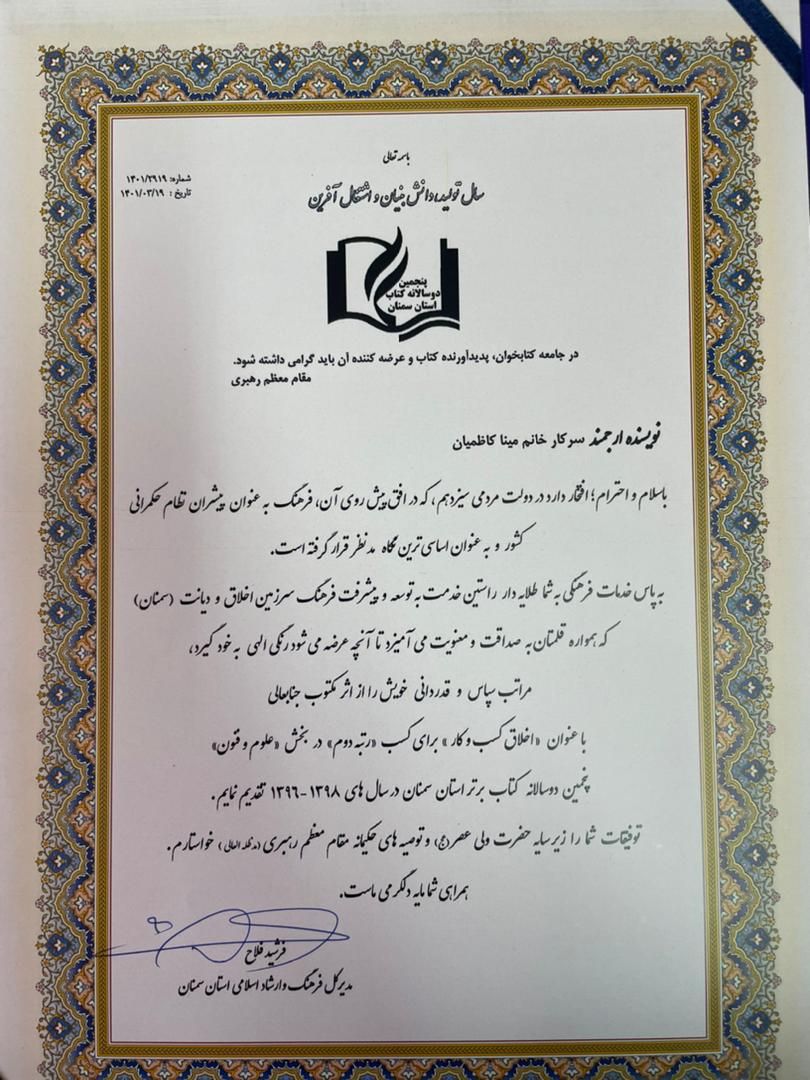 باسمه تعالی
شماره: ۱۴۰۱/۲۹۱۹
تاریخ : ۱۴۰۱/۰۳/۱۹
سال تولید، دانش بنیان و اشتغال آفرین
پنجمین
دوسالانه کتاب
استان سمنان
در جامعه کتابخوان، پدیدآورنده کتاب و عرضه کننده آن باید گرامی داشته شود.
مقام معظم رهبری
نویسنده ارجمند سرکار خانم مینا کاظمیان
باسلام و احترام؛ افتخار دارد در دولت مردمی سیزدهم، که در افق پیش روی آن، فرهنگ به عنوان پیشران نظام حکمرانی
کشور و به عنوان اساسی ترین نگاه مدنظر قرار گرفته است.
به پاس خدمات فرهنگی به شما طلایه دار راستین خدمت به توسعه و پیشرفت فرهنگ سرزمین اخلاق و دیانت (سمنان)
که همواره قلمتان به صداقت و معنویت می آمیزد تا آنچه عرضه می شود رنگی الهی به خود گیرد،
مراتب سپاس و قدردانی خویش را از اثر مکتوب جنابعالی
با عنوان «اخلاق کسب و کار» برای کسب «رتبه دوم» در بخش «علوم و فنون»
پنجمین دوسالانه کتاب برتر استان سمنان در سال های ۱۳۹۸-۱۳۹۶ تقدیم نمایم.
توفیقات شما را زیر سایه حضرت ولی عصر(عج) و توصیه های حکیمانه مقام معظم رهبری (مدظله العالی) خواستارم.
همراهی شما مایه دلگرمی ماست.
فرشید فلاح
مدیرکل فرهنگ و ارشاد اسلامی استان سمنان